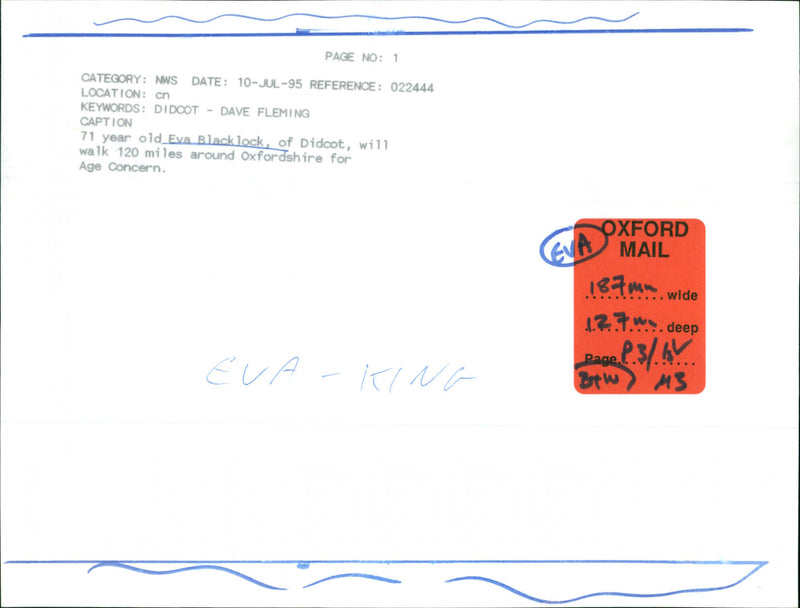 PAGE NO: 1
CATEGORY: NWS DATE: 10-JUL-95 REFERENCE: 022444
LOCATION: cn
KEYWORDS: DIDCOT - DAVE FLEMING
CAPTION
71 year old Eva Blacklock, of Didcot, will
walk 120 miles around Oxfordshire for
Age Concern.
EVA
OXFORD
MAIL
187mm wide
127mm deep
Page P3/
B+W
EVA - KING